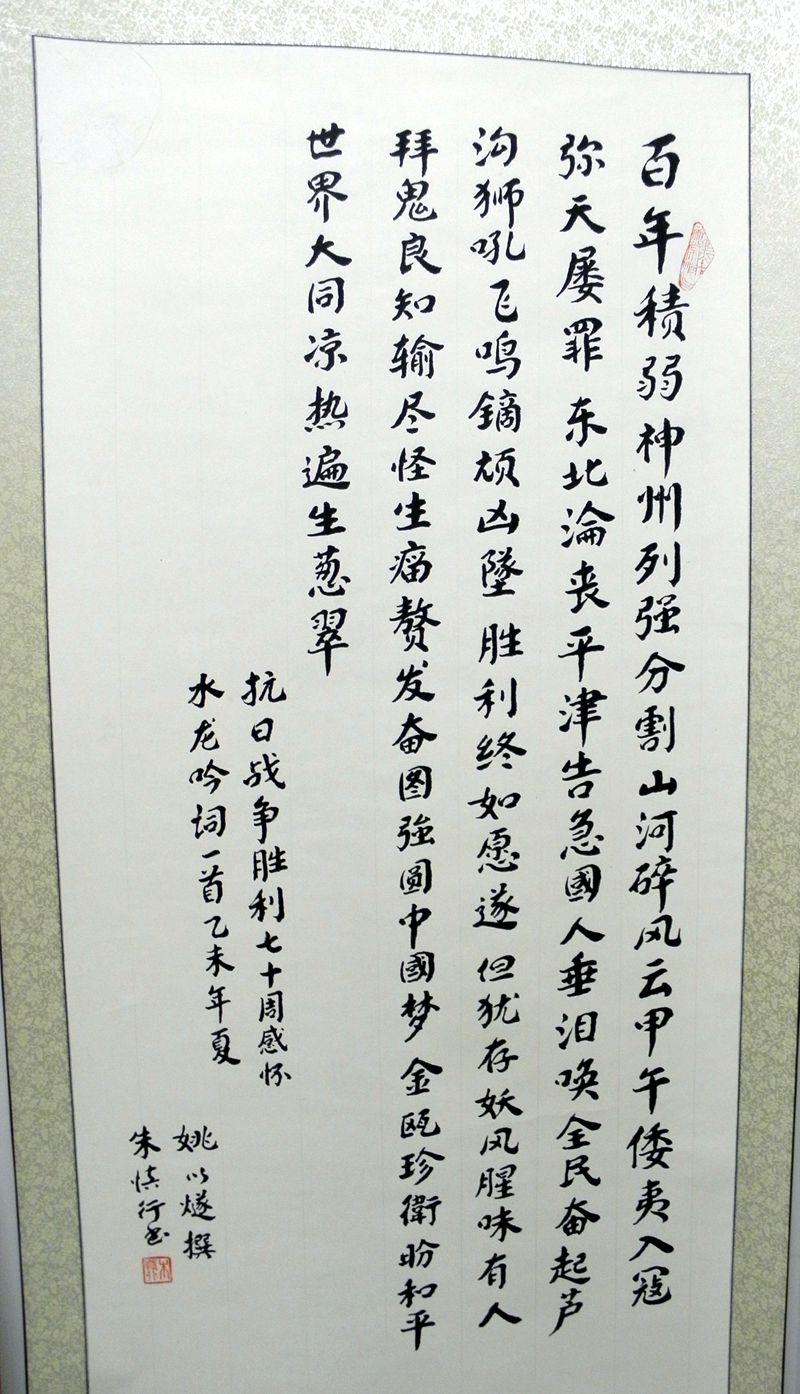 百年積弱神州列强分割山河碎风云甲午倭夷入冠
弥天屡罪东北淪丧平津告急國人垂泪唤全民奋起芦
沟狮吼飞鸣鏑顽凶墜胜利终如愿遂但犹存妖风腥味有人
拜鬼良知输尽怪生瘤赘发奋图強圆中國梦金瓯珍衛盼和平
世界大同凉热遍生葱翠
抗日战争胜利七十周感怀
水龙吟词一首乙未年夏
姚以燧撰
朱慎行书